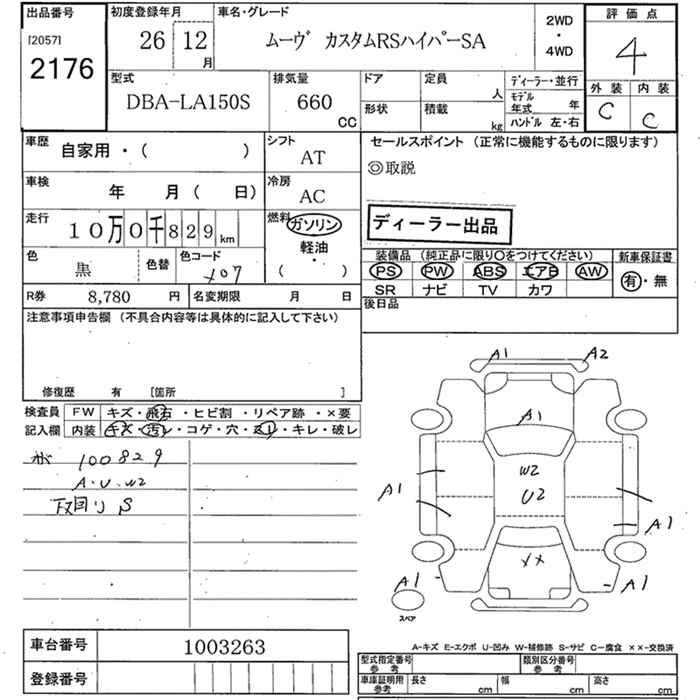 出品番号 初度登録年月 車名・グレード 2WD 評価点
[2057] 26 12 月 ムーヴ カスタムRSハイパーSA ・ 4
2176 4WD
型式 排気量 ドア 定員 人 ディーラー・並行 外装 内装
DBA-LA150S 660 CC 形状 積載 kg モデル年式 年 C C
ハンドル 左・右
車歴 自家用・( ) シフト AT セールスポイント (正常に機能するものに限ります)
◎取説
車検 年 月( 日) 冷房 AC
走行 10万0千829 km 燃料 ガソリン ディーラー出品
軽油
・
( )
色 黒 色替 色コード X07 装備品 (純正品に限り○をつけてください) 新車保証書
PS PW ABS エアB AW 有・無
R券 8,780 円 名変期限 月 日 SR ナビ TV カワ
注意事項申告欄 (不具合内容等は具体的に記入して下さい) 後日品
修復歴 有 [箇所 ]
検査員 FW キズ・飛石・ヒビ割・リペア跡・×要
記入欄 内装 キズ・汚レ・コゲ・穴・ヌレ・キレ・破レ
100829
A・U・W2
下回り S
A1 A2
A1
W2
U2
A1 A1
XX
A1 A1
スペア
車台番号 1003263
A-キズ E-エクボ U-凹み W-補修跡 S-サビ C-腐食 ××-交換済
登録番号
型式指定番号 参考 類別区分番号 参考
車庫証明用 参考 長さ cm 幅 cm 高さ cm